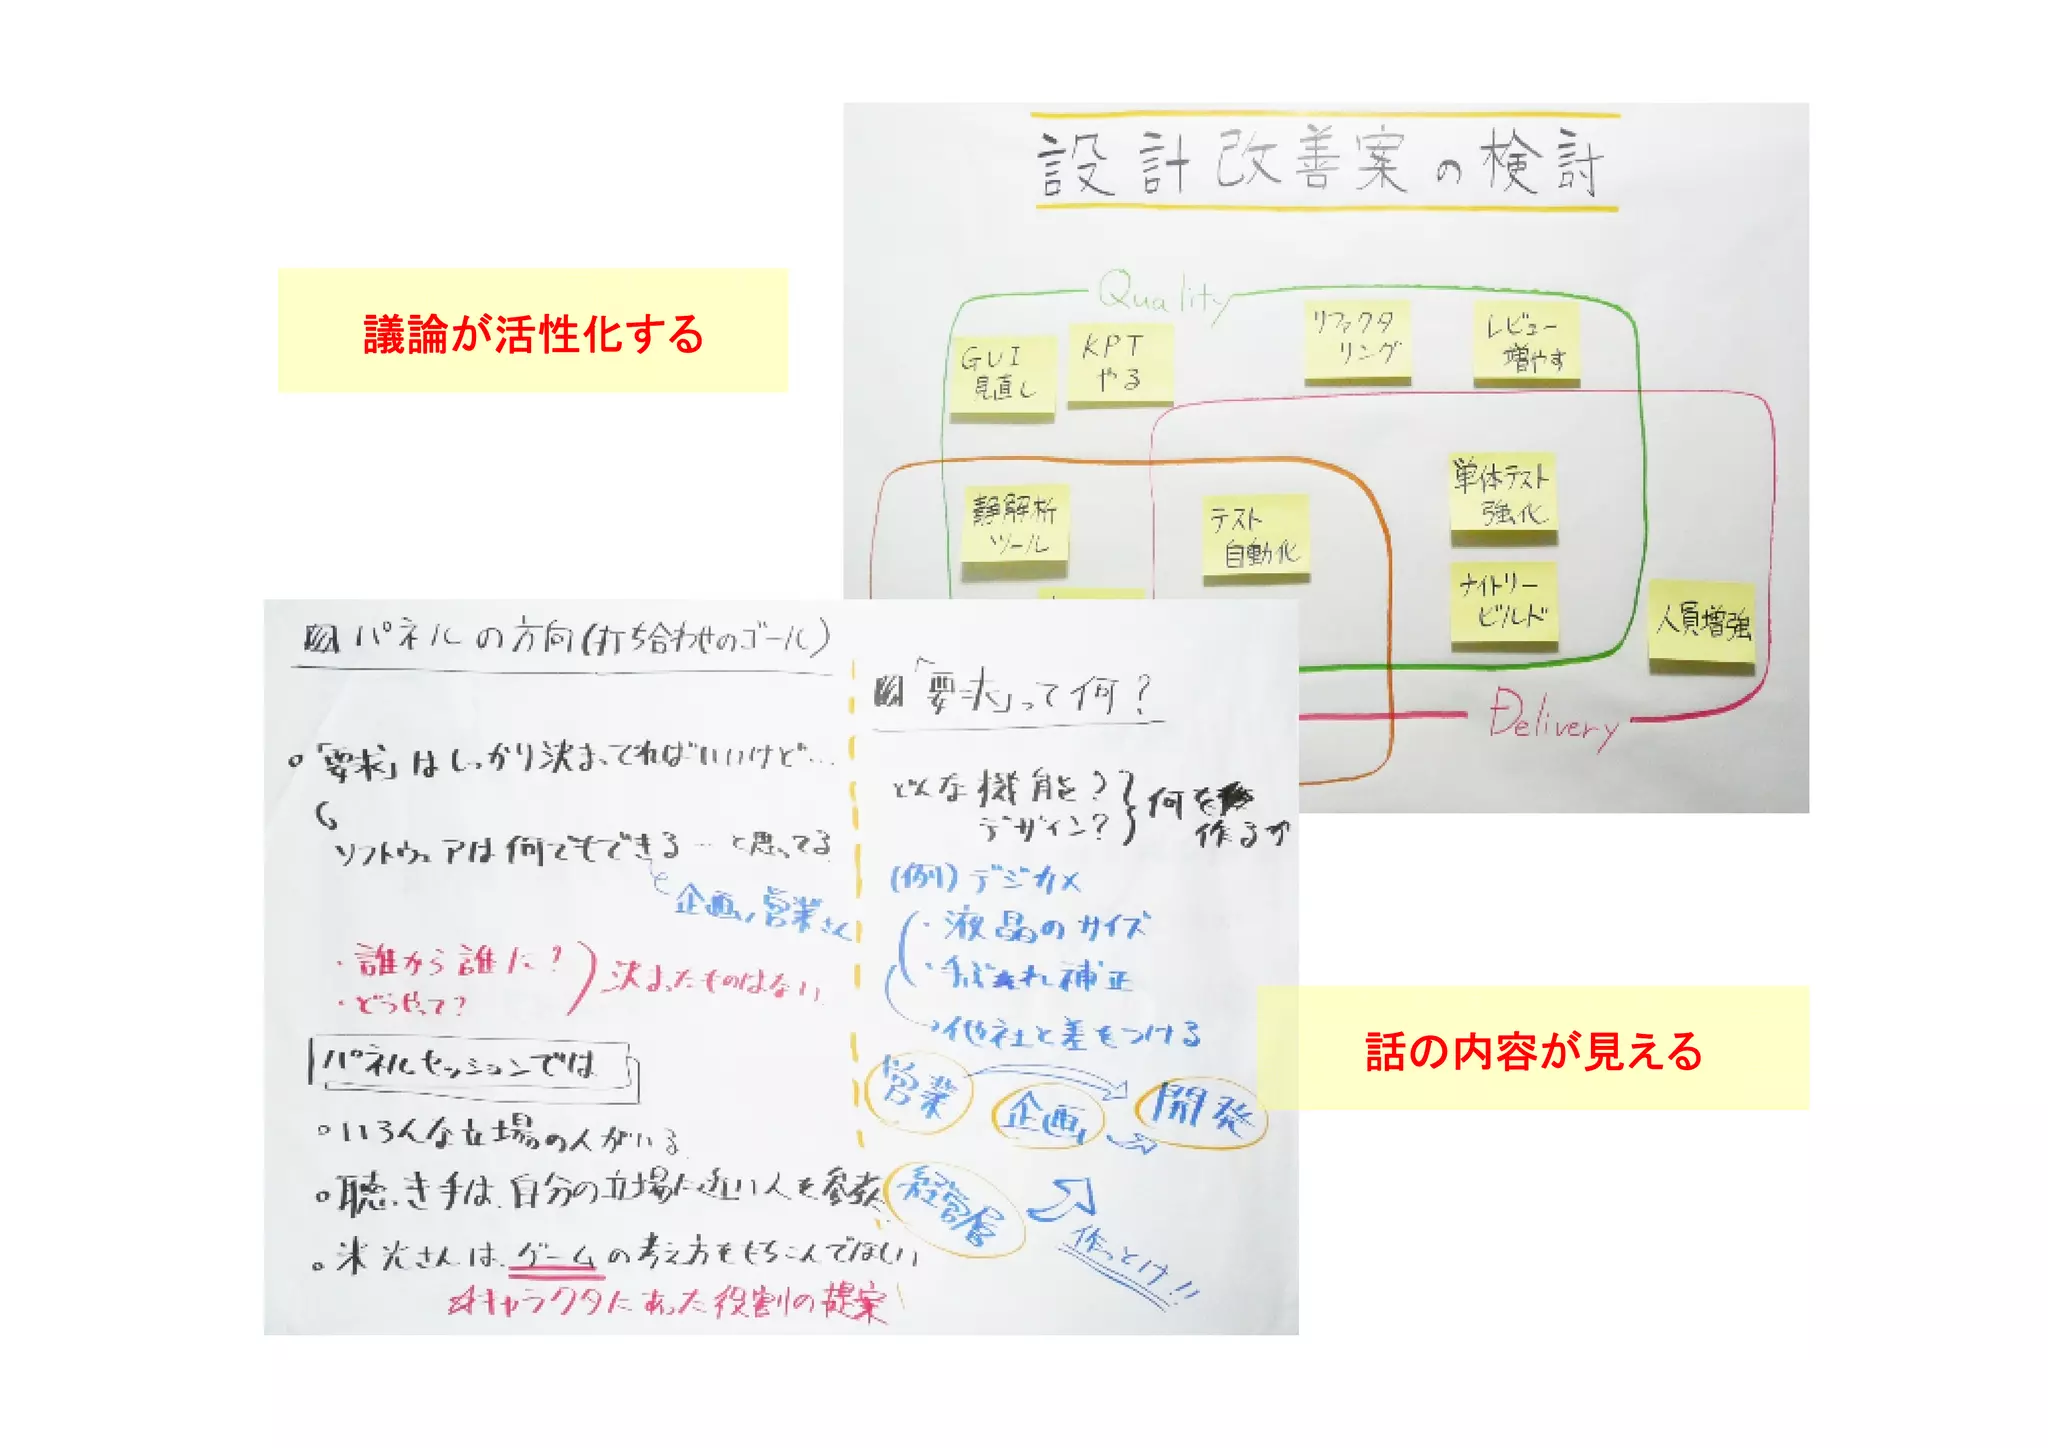 設計改善案の検討
議論が活性化する
Quality
GUI
見直し
KPT
やる
リファクタ
リング
レビュー
増やす
静解析
ツール
テスト
自動化
単体テスト
強化
ナイトリー
ビルド
人員増強
Delivery
パネルの方向(打ち合わせのゴール)
。「要求」はしっかり決まってればいいけど…
ソフトウェアは何でもできる…と思ってる
企画、営業さん
・誰から誰に?
・どうやって?
決まったものはない
パネルセッションでは
。いろんな立場の人がいる
。聴き手は、自分の立場に近い人を参考
。米光さんは、ゲームの考え方をもちこんでほしい
キャラクタにあった役割の提案
「要求」って何?
どんな機能を?
デザイン?
何を
作るか
(例)デジカメ
・液晶のサイズ
・手ぶれ補正
他社と差をつける
営業
企画
開発
経営層
作っとけ!!
話の内容が見える